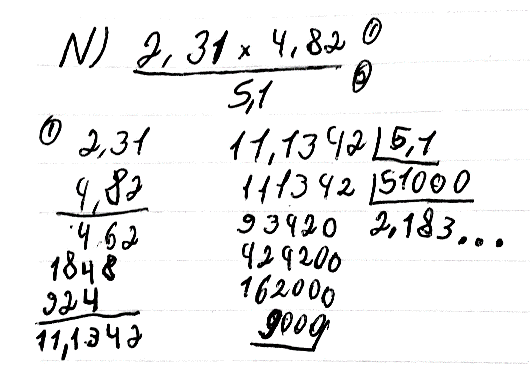 N) 2,31 x 4,82 ①
5,1 ②
① 2,31
4,82
4 62
1848
924
11,1342
11,1342 | 5,1
111342 | 51000
93420 2,183...
424200
162000
9000